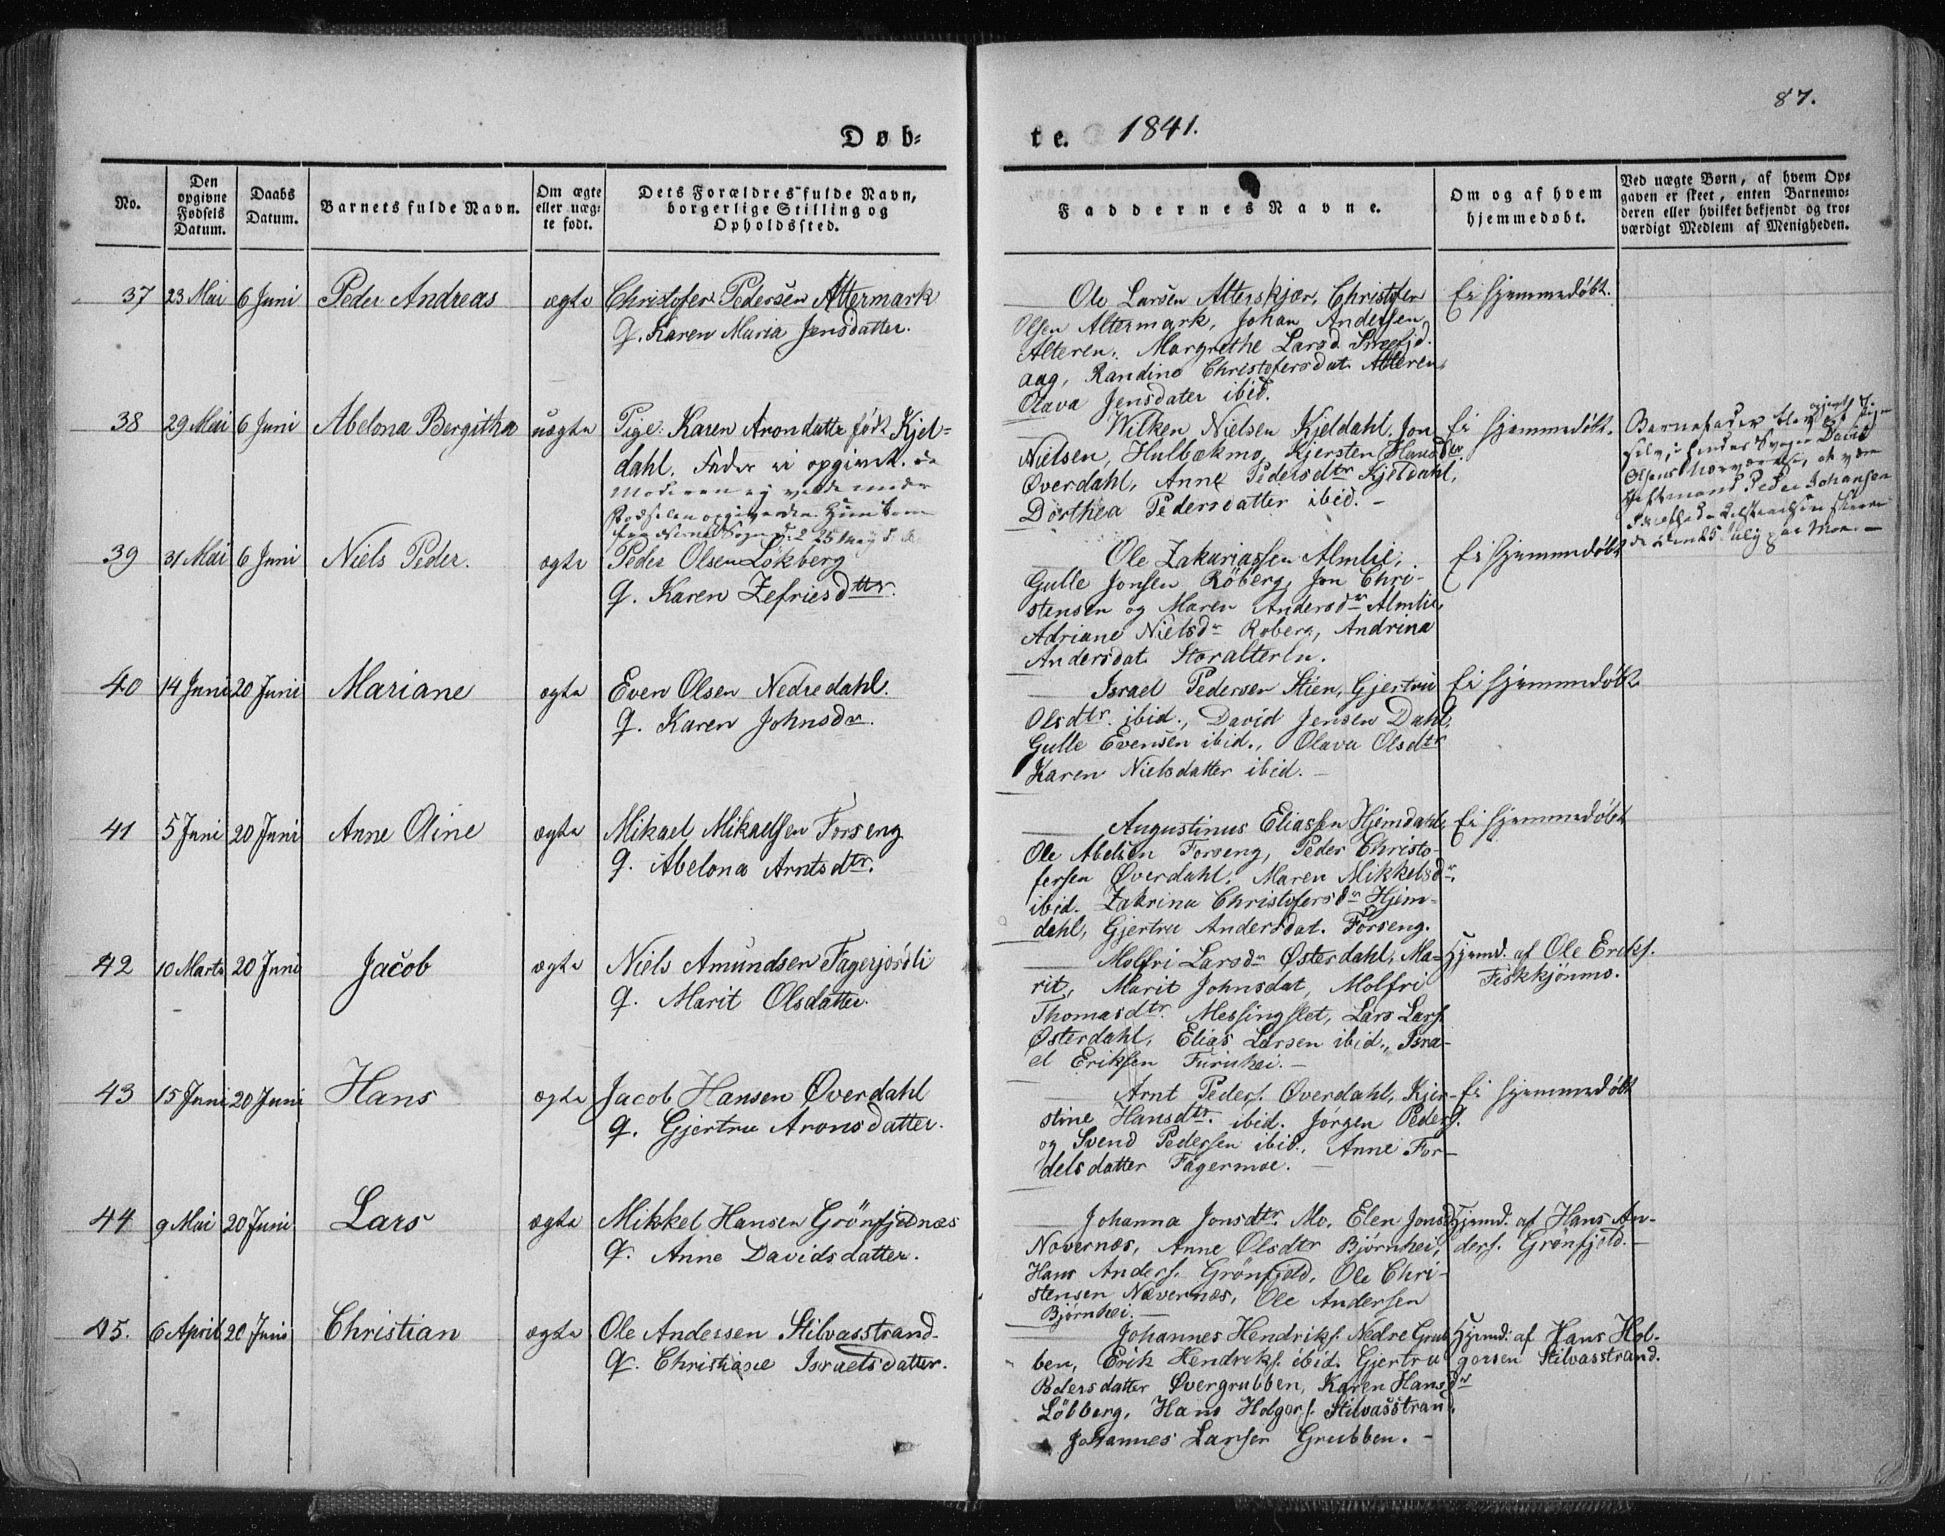 87.
Døb-
te. 1841.
No.
Den opgivne Fødsels Datum.
Daabs Datum.
Barnets fulde Navn.
Om ægte eller uæg-
te født.
Dets Forældres fulde Navn,
borgerlige Stilling og
Opholdssted.
Faddernes Navne.
Om og af hvem
hjemmedøbt.
Ved uægte Børn, af hvem Op-
gaven er skeet, enten Barnemo-
deren eller hvilket bekjendt og tro-
værdigt Medlem af Menigheden.
37 23 Mai 6 Juni Peder Andreas ægte Christofer Pedersen Altermark
q. Karen Maria Jensdatter.
Ole Larsen Alterskjær, Christofer
Olsen Altermark, Johan Andersen
Alteren, Margrethe Larsd.
aag, Randine Christofersdat. Alteren,
Olava Jensdater ibid.
Ei hjemmedøbt.
38 29 Mai 6 Juni Abelona Bergitha uægte Pige Karen Arondatter født Kjel-
dahl. Fader ei opgivet. da
Moderen ej vilde
Fødselen
25 Maj
Wilken Nielsen Kjeldahl, Jon
Nielsen, Hulbækmo, Kjersten Hansdtr.
Øverdahl, Anne Pedersdtr Kjeldahl,
Dorthea Pedersdatter ibid. -
Ei hjemmedøbt.
Barnefader blev opgivet
selv, hendes Svoger David
Olsens Nærværelse, at være
Peder Johansen
39 31 Mai 6 Juni Niels Peder. ægte Peder Olsen Løkberg
q. Karen Zefriesdttr.
Ole Zakariassen Almlie,
Gulle Jonsen Røberg, Jon Chri-
stensen og Maren Andersdr Almlie,
Adriane Nielsdr Roberg, Andrina
Andersdat. Storalteren.
Ei hjemmedøbt
40 14 Juni 20 Juni Mariane ægte Even Olsen Nedredahl.
q. Karen Johnsdr.
Israel Pedersen Stien, Gjertru
Olsdtr. ibid., David Jensen Dahl,
Gulle Evensen ibid., Olava Olsdtr
Karen Nielsdatter ibid. -
Ei hjemmedøbt
41 5 Juni 20 Juni Anne Oline ægte Mikael Mikaelsen Forseng
q. Abelona Arntsdtr.
Augustinus Eliassen Hjemdahl,
Ole Abelsen Forseng, Peder Christo-
fersen Øverdahl, Maren Mikkelsdr.
ibid. Zakrina Christofersdr Hjem-
dahl, Gjertru Andersdat. Forseng.
Ei hjemmedøbt
42 10 Marts 20 Juni Jacob ægte Niels Amundsen Fagerjosøli
q. Marit Olsdatter.
Molfri Larsdr Østerdahl, Ma-
rit, Marit Johnsdat, Molfri
Thomasdtr. Messingslet, Lars Lars.
Østerdahl, Elias Larsen ibid., Isra-
el Eriksen Furuhei. -
Hjemd. af Ole Eriks.
Fiskkjønmo.
43 15 Juni 20 Juni Hans ægte Jacob Hansen Øverdahl
q. Gjertru Aronsdatter.
Arnt Peders. Øverdahl, Kjer-
stine Hansdtr. ibid. Jørgen Peders.
og Svend Pedersen ibid., Anne For-
delsdatter Fagermoe. -
Ei hjemmedøbt
44 9 Mai 20 Juni Lars ægte Mikkel Hansen Grønfjednæs
q. Anne Davidsdatter.
Johanna Jonsdtr. Mo, Elen Jonsd
Novernæs, Anne Olsdtr Bjørnhei,
Hans Anders. Grønfjeld, Ole Chri-
stensen Nævernæs, Ole Andersen
Bjørnhei. -
Hjemd. af Hans An-
ders. Grønfjeld. -
45. 6 April 20 Juni Christian ægte Ole Andersen Stilvasstrand
q. Christiane Israelsdatter.
Johannes Hendriks. Nedre Grub-
ben, Erik Hendriks. ibid. Gjertru
Pedersdatter Øvergrubben, Karen Hansdr
Løbberg, Hans Holgers. Stilvasstran.
Johannes Larsen Grubben. -
Hjemd. af Hans Hol-
gersen Stilvasstrand.